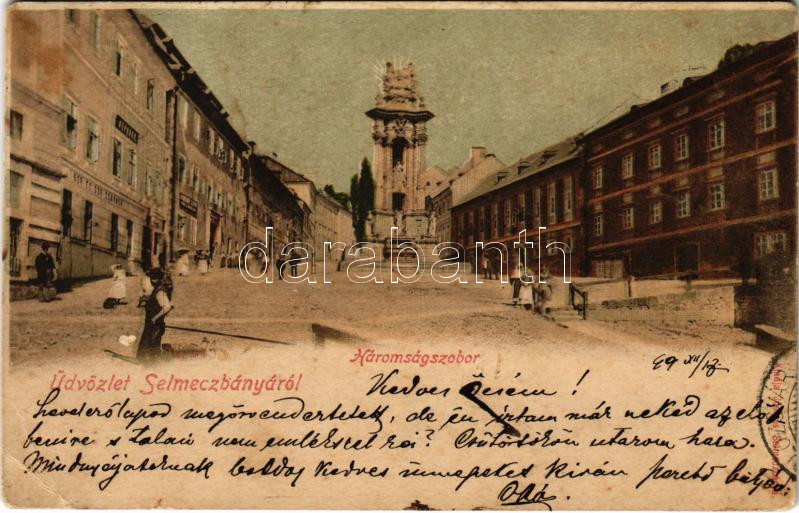 darabanth
Háromságszobor
Üdvözlet Selmeczbányáról
99 XII/17
Kedves Öcsém!
Levelezőlapod megörvendeztetett, de én írtam már neked azelőtt
s talán nem emlékszel rá? Csütörtökön utazom haza.
Mindnyájatoknak boldog kedves ünnepeket kíván szerető bátyád: